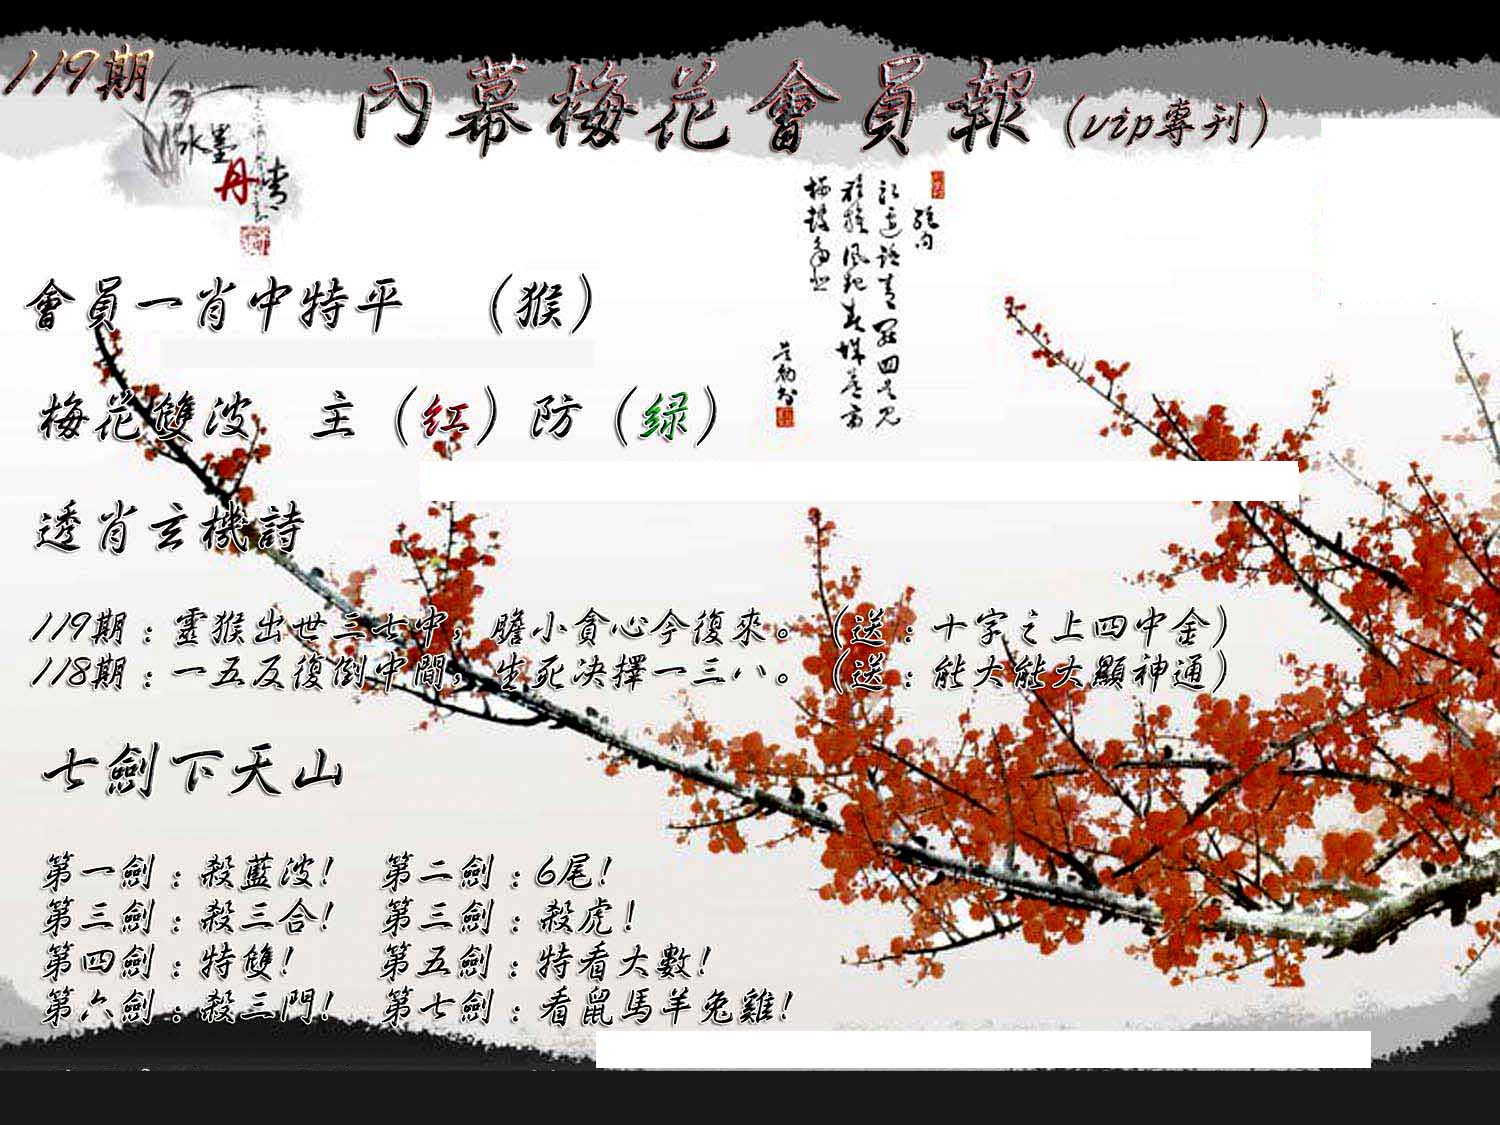 119期
內幕梅花會員報（vip專刊）
水墨
丹青
會員一肖中特平　（猴）
梅花雙波　主（红）防（绿）
透肖玄機詩
119期：靈猴出世三七中，膽小貪心今復來。（送：十字之上四中金）
118期：一五反復倒中間，生死决擇一三八。（送：能大能大顯神通）
七劍下天山
第一劍：殺藍波！　第二劍：6尾！
第三劍：殺三合！　第三劍：殺虎！
第四劍：特雙！　第五劍：特看大數！
第六劍：殺三門！　第七劍：看鼠馬羊兔雞！